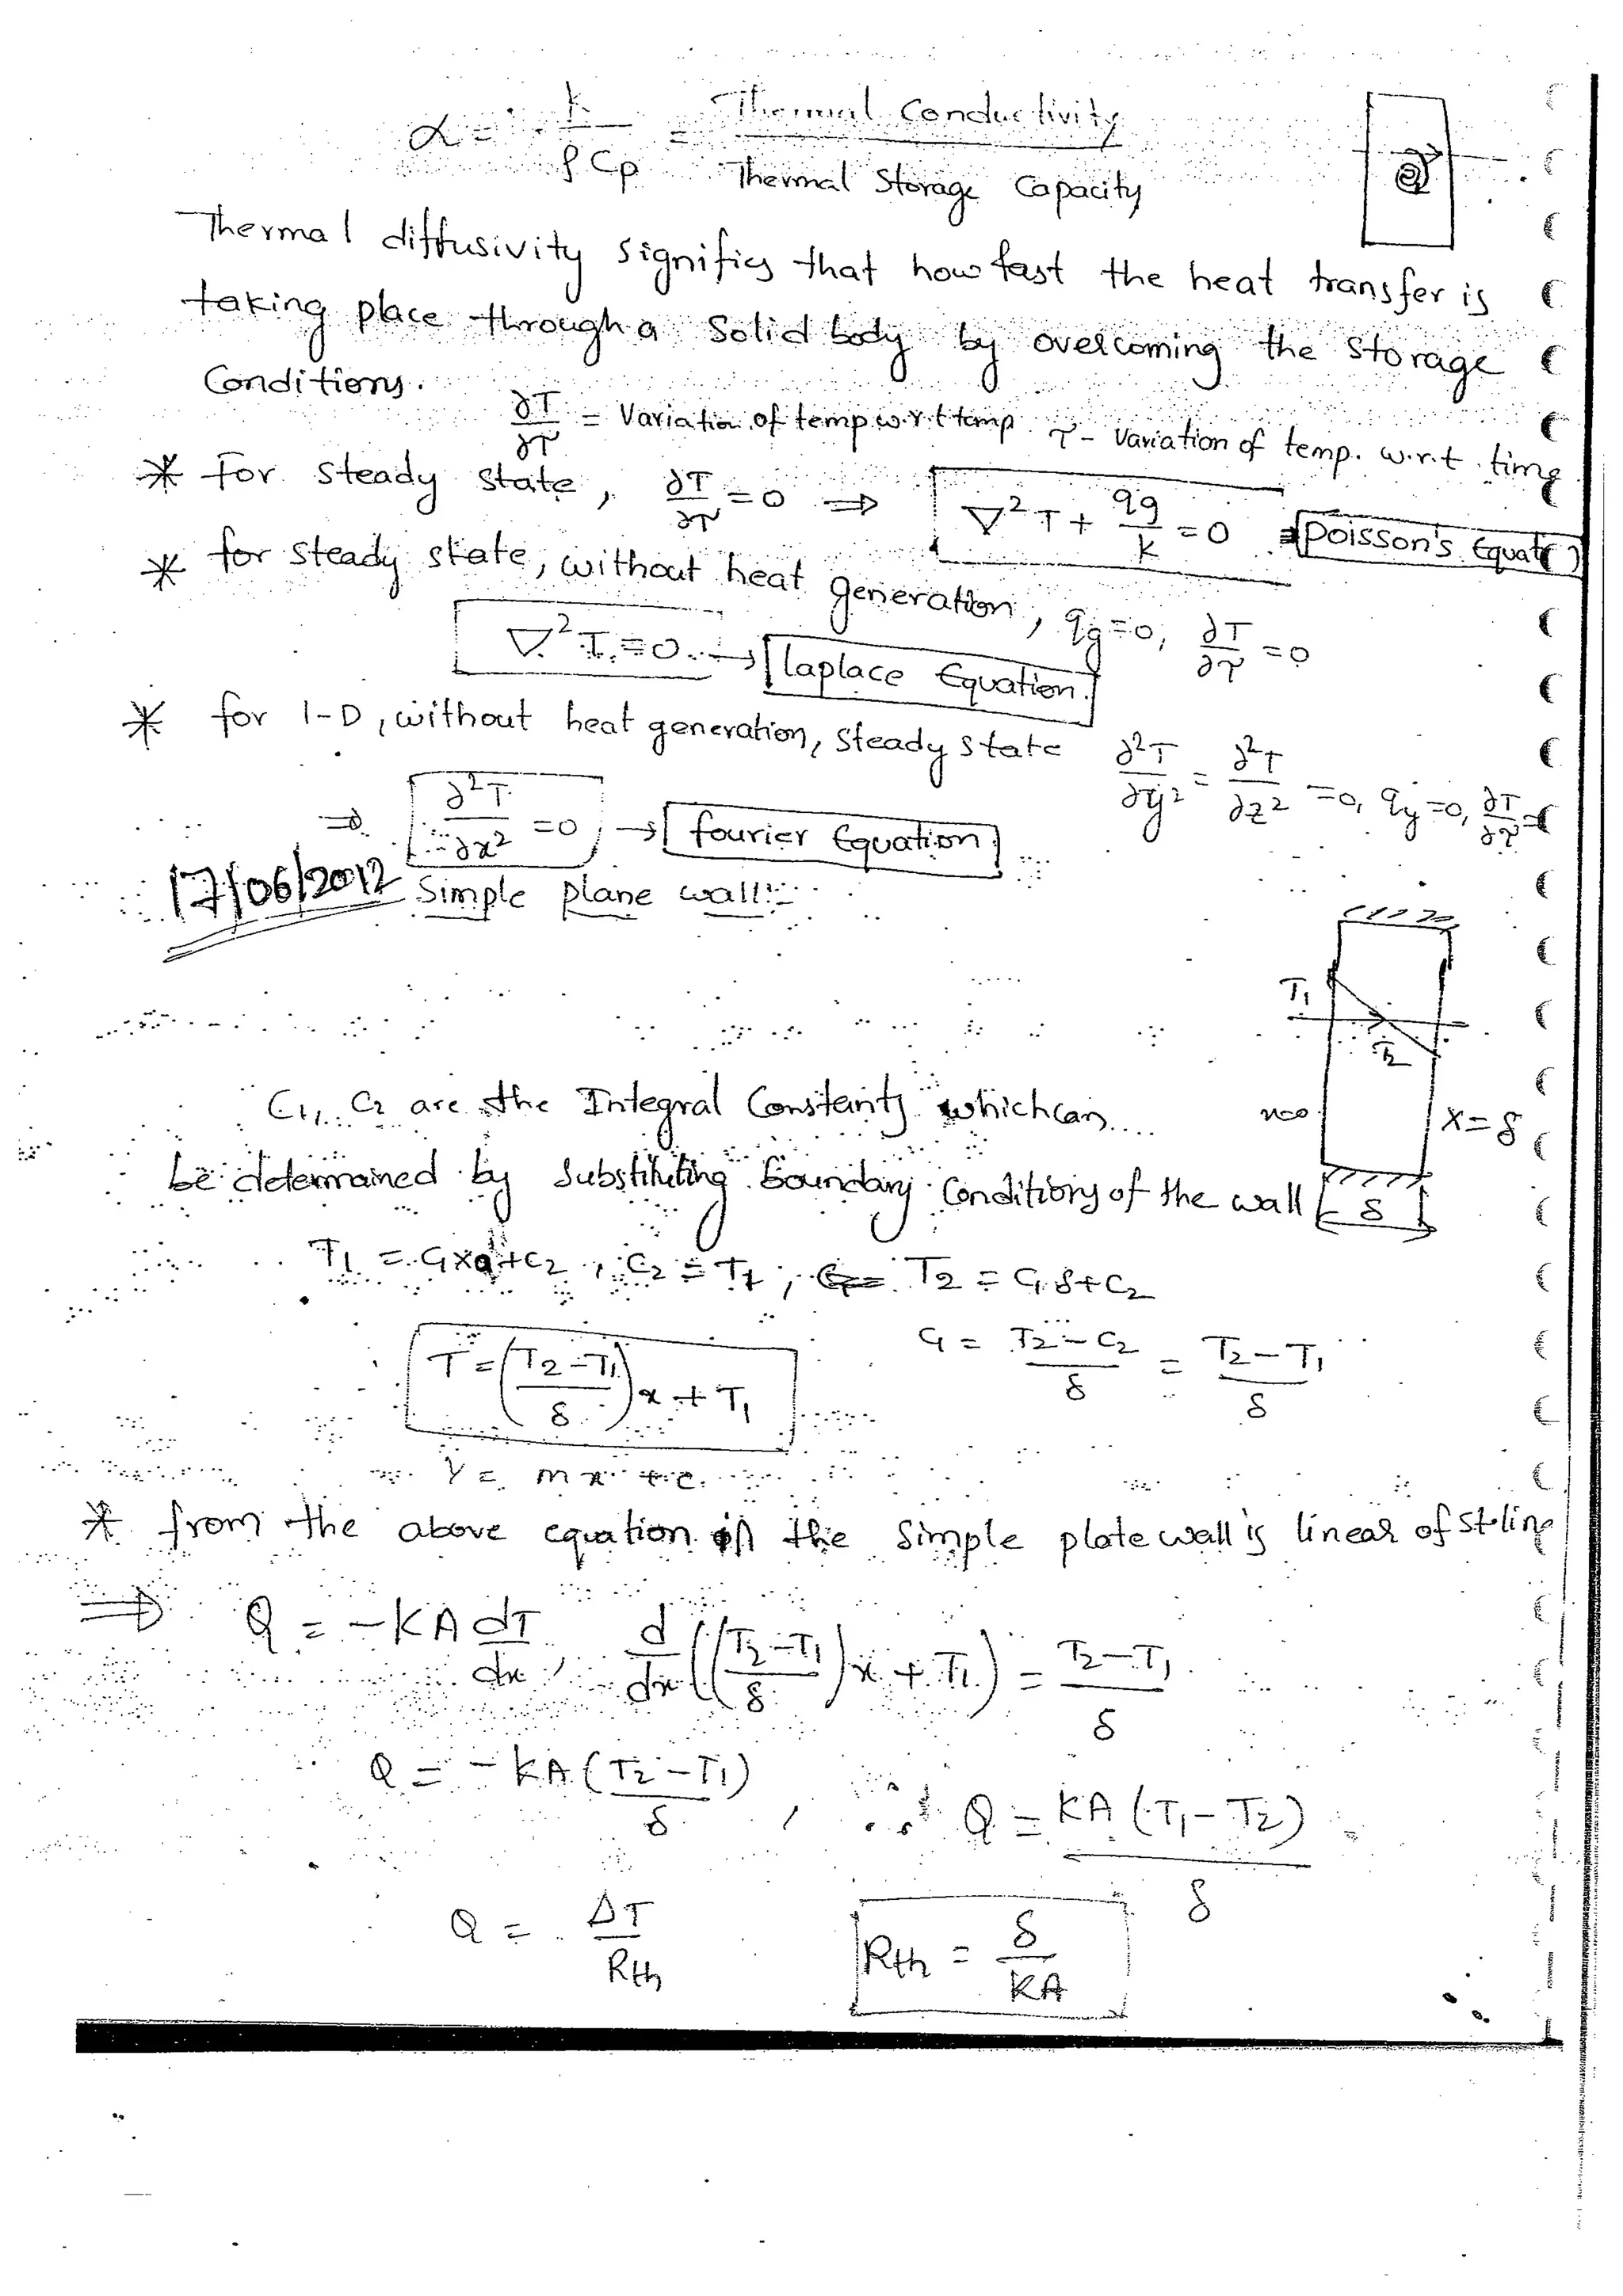 α = k / ρCp = Thermal Conductivity / Thermal Storage Capacity
Q
Thermal diffusivity signifies that how fast the heat transfer is
taking place through a solid body by overcoming the storage
Conditions.
∂T/∂τ = Variation of temp w.r.t temp τ - Variation of temp. w.r.t time
* For steady state, ∂T/∂τ = 0 ⇒ ∇²T + qg/k = 0 ⇒ Poisson's Equat
* for steady state, without heat generation, qg = 0, ∂T/∂τ = 0
∇²T = 0 → Laplace Equation.
* for 1-D, without heat generation, steady state ∂²T/∂y² = ∂²T/∂z² = 0, qg = 0, ∂T/∂τ =
⇒ ∂²T/∂x² = 0 → fourier Equation
17/06/2012 Simple plane wall:-
T1
T2
C1, C2 are the Integral Constants which can
x=0 x=δ
be determained by Substituting boundary Conditions of the wall
δ
T1 = C1×0+C2, C2 = T1; T2 = C1δ+C2
C1 = (T2-C2)/δ = (T2-T1)/δ
T = ((T2-T1)/δ)x + T1
Y = mx + c.
* from the above equation of the Simple plate wall is linear of St.line
⇒ Q = -KA dT/dx, d/dx(((T2-T1)/δ)x + T1) = (T2-T1)/δ
Q = -KA(T2-T1)/δ, ∴ Q = KA(T1-T2)/δ
Q = ΔT/Rth Rth = δ/KA